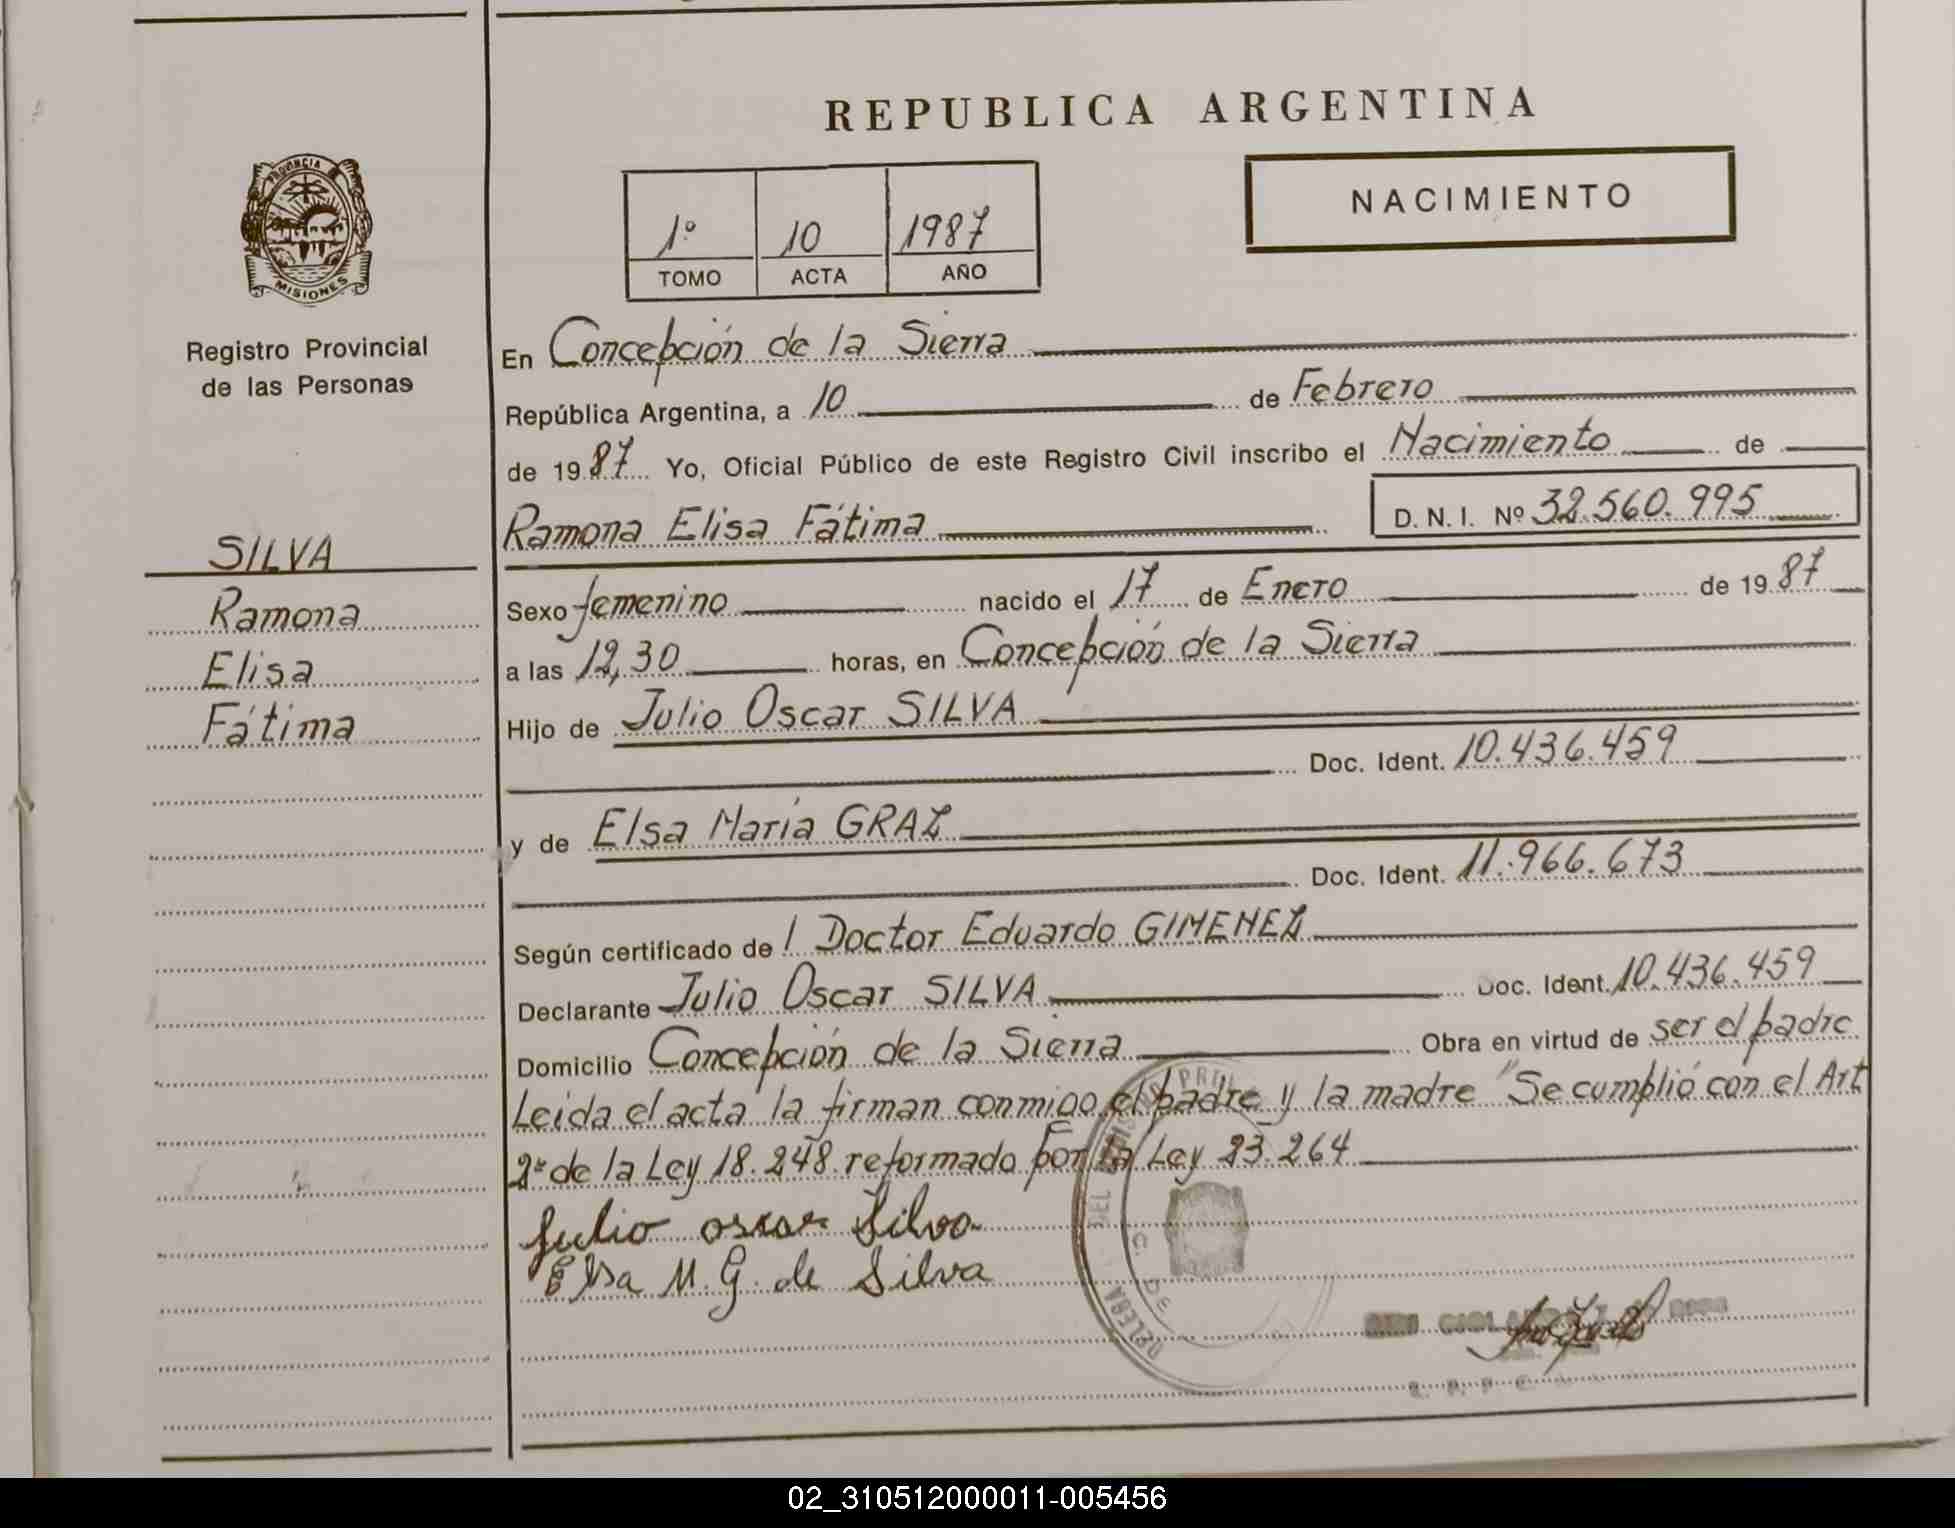 REPUBLICA ARGENTINA
PROVINCIA
MISIONES
Registro Provincial
de las Personas
1º 10 1987
TOMO ACTA AÑO
NACIMIENTO
SILVA
Ramona
Elisa
Fátima
En Concepción de la Sierra
República Argentina, a 10 de Febrero
de 1987 Yo, Oficial Público de este Registro Civil inscribo el Nacimiento de
Ramona Elisa Fátima D.N.I. Nº 32.560.995
Sexo femenino nacido el 17 de Enero de 1987
a las 12,30 horas, en Concepción de la Sierra
Hijo de Julio Oscar SILVA
Doc. Ident. 10.436.459
y de Elsa María GRAZ
Doc. Ident. 11.966.673
Según certificado de l Doctor Eduardo GIMENEZ
Declarante Julio Oscar SILVA Doc. Ident. 10.436.459
Domicilio Concepción de la Sierra Obra en virtud de ser el padre
Leida el acta la firman conmigo el padre y la madre "Se cumplió con el Art
2º de la Ley 18.248 reformado por la Ley 23.264
Julio oscar Silva
Elsa M. G. de Silva
02_310512000011-005456